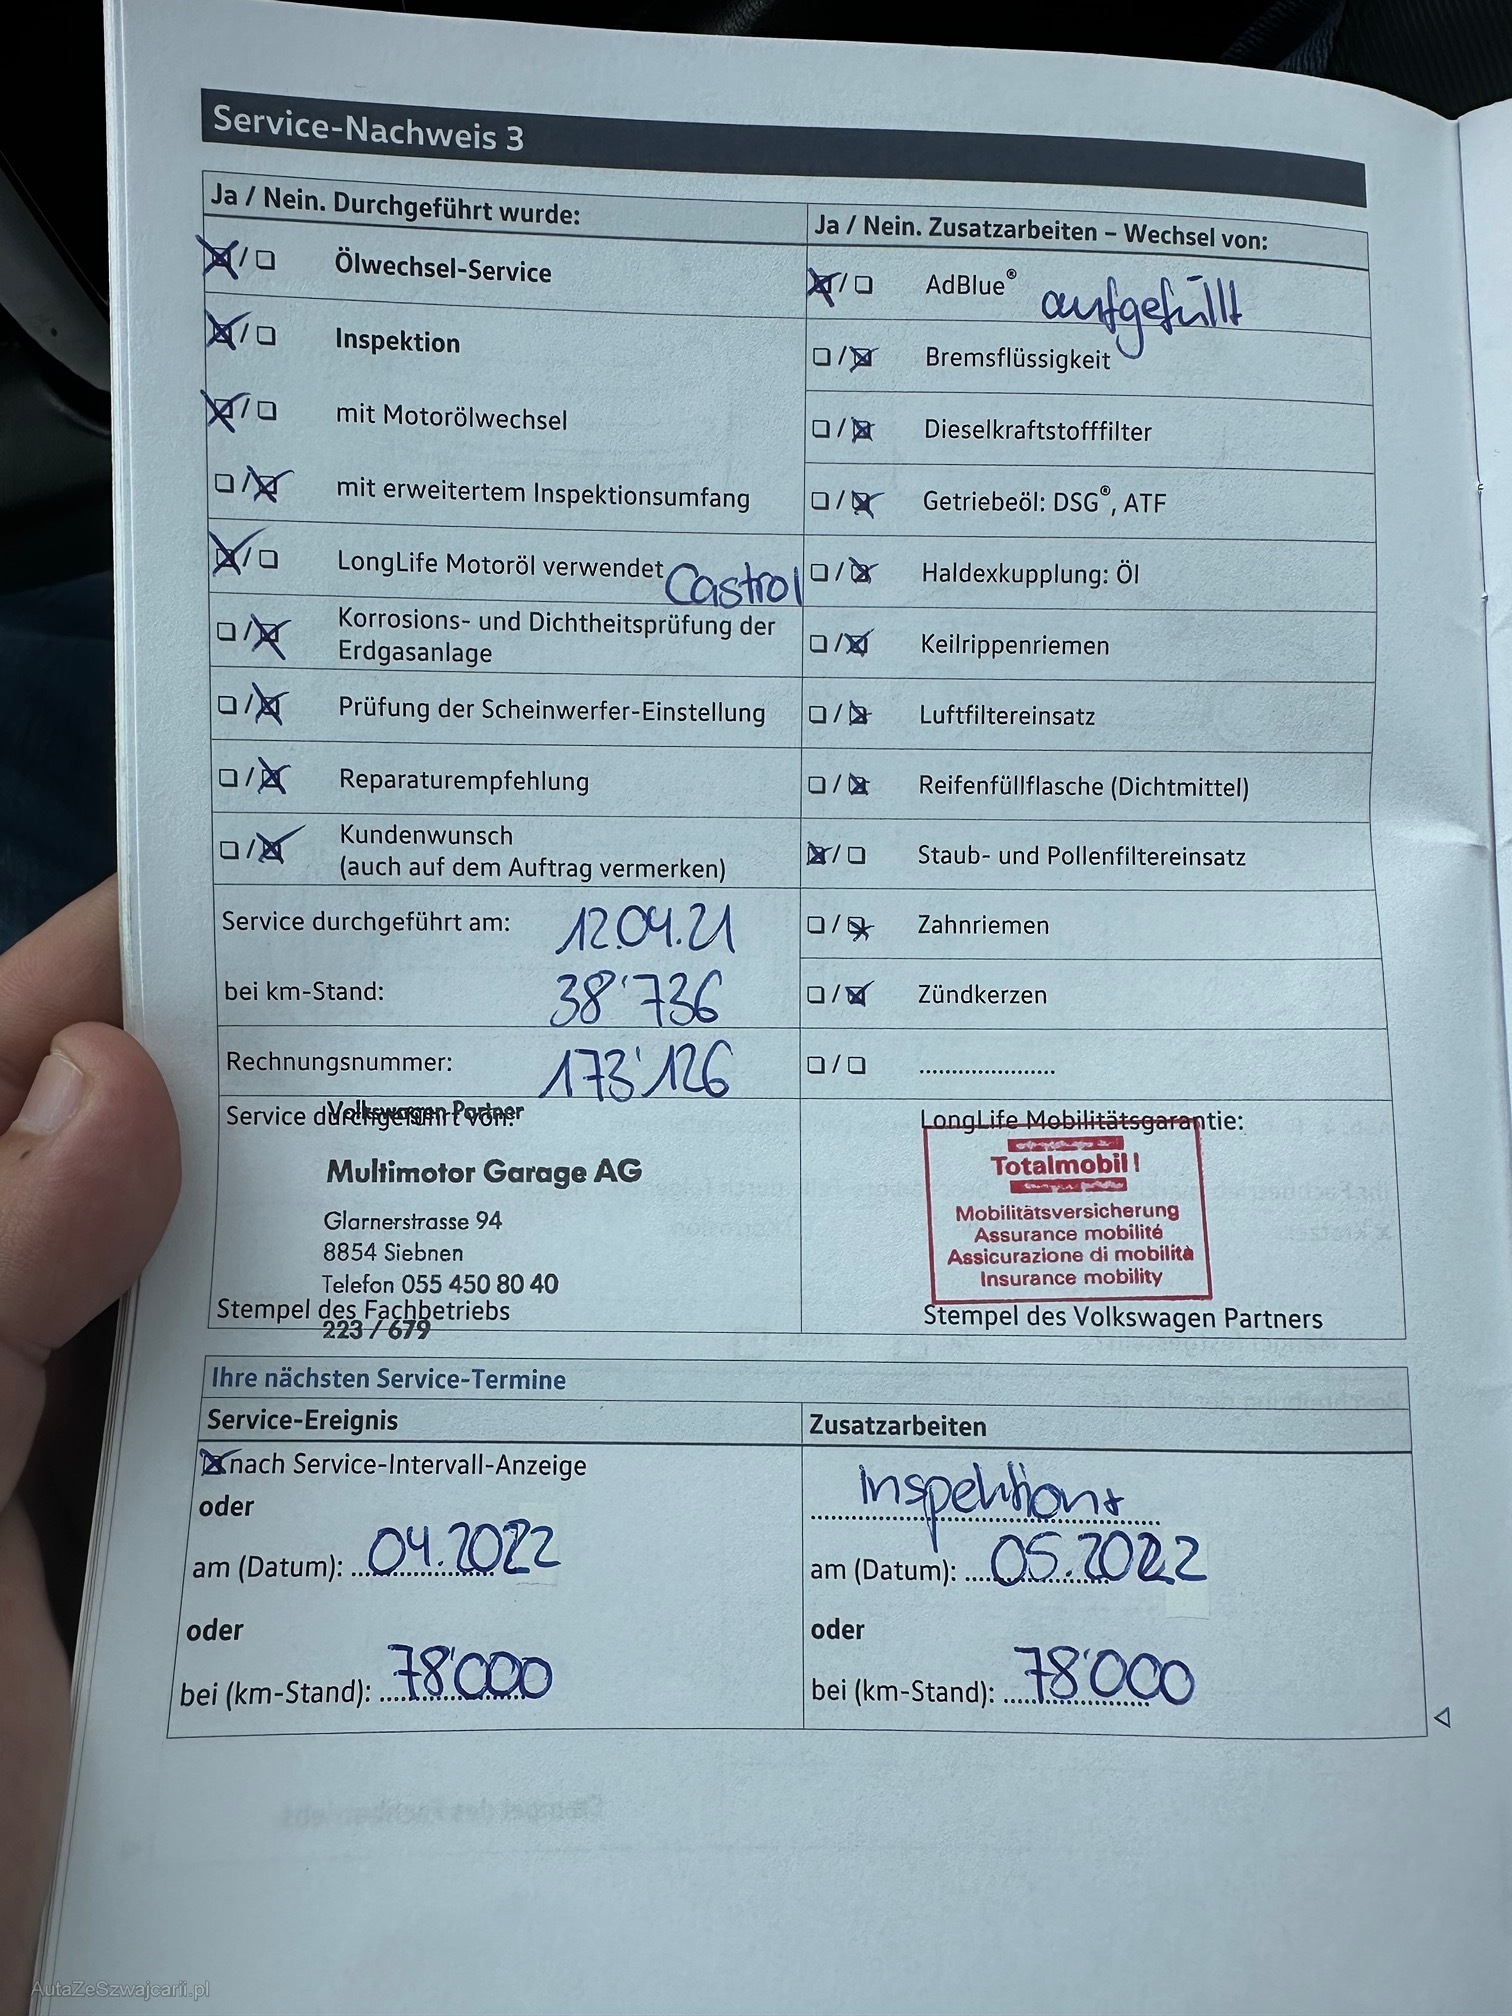 Service-Nachweis 3
Ja / Nein. Durchgeführt wurde:
Ölwechsel-Service
Inspektion
mit Motorölwechsel
mit erweitertem Inspektionsumfang
LongLife Motoröl verwendet Castrol
Korrosions- und Dichtheitsprüfung der
Erdgasanlage
Prüfung der Scheinwerfer-Einstellung
Reparaturempfehlung
Kundenwunsch
(auch auf dem Auftrag vermerken)
Service durchgeführt am: 12.04.21
bei km-Stand: 38'736
Rechnungsnummer: 173'126
Ja / Nein. Zusatzarbeiten – Wechsel von:
AdBlue® aufgefüllt
Bremsflüssigkeit
Dieselkraftstofffilter
Getriebeöl: DSG®, ATF
Haldexkupplung: Öl
Keilrippenriemen
Luftfiltereinsatz
Reifenfüllflasche (Dichtmittel)
Staub- und Pollenfiltereinsatz
Zahnriemen
Zündkerzen
.....................
Service durchgeführt von:
Volkswagen Partner
Multimotor Garage AG
Glarnerstrasse 94
8854 Siebnen
Telefon 055 450 80 40
Stempel des Fachbetriebs
223 / 679
LongLife Mobilitätsgarantie:
Totalmobil!
Mobilitätsversicherung
Assurance mobilité
Assicurazione di mobilità
Insurance mobility
Stempel des Volkswagen Partners
Ihre nächsten Service-Termine
Service-Ereignis
nach Service-Intervall-Anzeige
oder
am (Datum): 04.2022
oder
bei (km-Stand): 78'000
Zusatzarbeiten
Inspektion+
am (Datum): 05.2022
oder
bei (km-Stand): 78'000
AutaZeSzwajcarii.pl